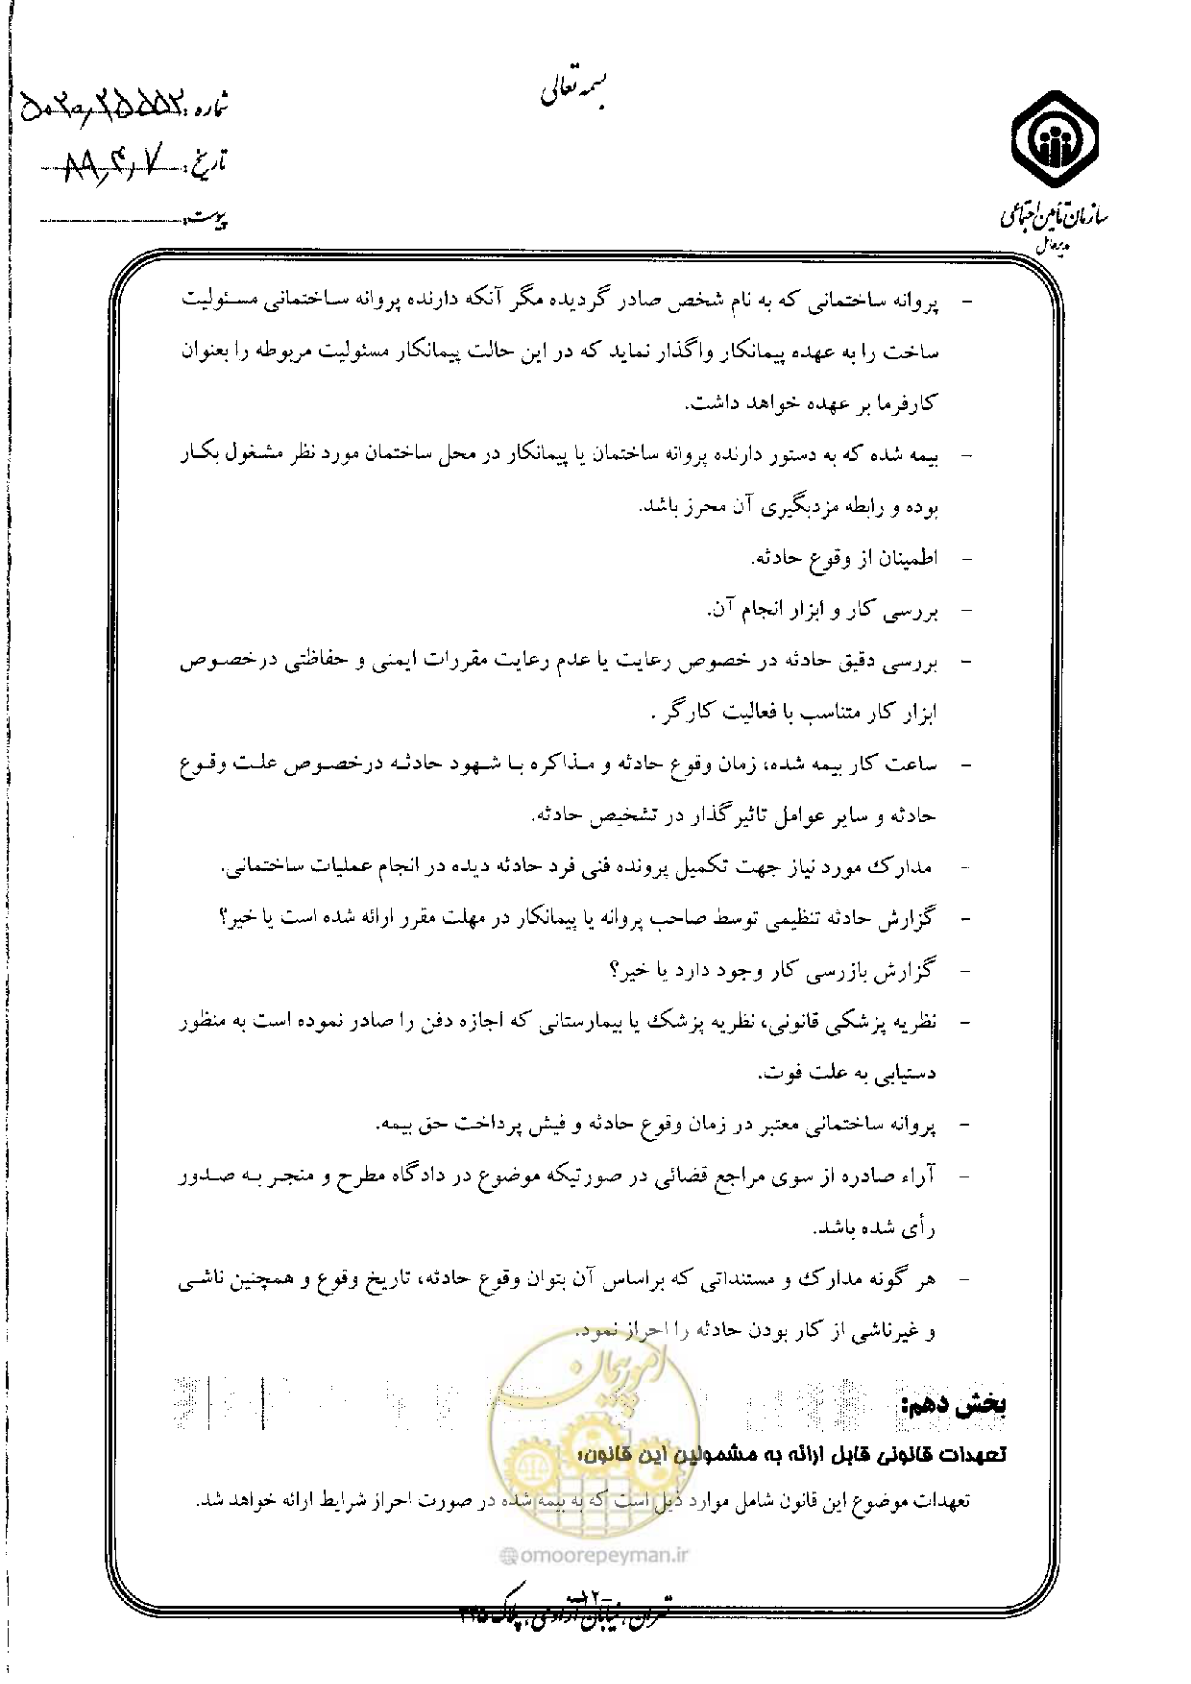 بسمه تعالی
شماره: ۵۰۲۰٫۲۵۵۵۲
تاریخ: ۸۹٫۴٫۷
پیوست:
سازمان تأمین اجتماعی
مدیرعامل
- پروانه ساختمانی که به نام شخص صادر گردیده مگر آنکه دارنده پروانه ساختمانی مسئولیت
ساخت را به عهده پیمانکار واگذار نماید که در این حالت پیمانکار مسئولیت مربوطه را بعنوان
کارفرما بر عهده خواهد داشت.
- بیمه شده که به دستور دارنده پروانه ساختمان یا پیمانکار در محل ساختمان مورد نظر مشغول بکار
بوده و رابطه مزدبگیری آن محرز باشد.
- اطمینان از وقوع حادثه.
- بررسی کار و ابزار انجام آن.
- بررسی دقیق حادثه در خصوص رعایت یا عدم رعایت مقررات ایمنی و حفاظتی درخصوص
ابزار کار متناسب با فعالیت کارگر .
- ساعت کار بیمه شده، زمان وقوع حادثه و مذاکره با شهود حادثه درخصوص علت وقوع
حادثه و سایر عوامل تاثیرگذار در تشخیص حادثه.
- مدارک مورد نیاز جهت تکمیل پرونده فنی فرد حادثه دیده در انجام عملیات ساختمانی.
- گزارش حادثه تنظیمی توسط صاحب پروانه یا پیمانکار در مهلت مقرر ارائه شده است یا خیر؟
- گزارش بازرسی کار وجود دارد یا خیر؟
- نظریه پزشکی قانونی، نظریه پزشک یا بیمارستانی که اجازه دفن را صادر نموده است به منظور
دستیابی به علت فوت.
- پروانه ساختمانی معتبر در زمان وقوع حادثه و فیش پرداخت حق بیمه.
- آراء صادره از سوی مراجع قضائی در صورتیکه موضوع در دادگاه مطرح و منجر به صدور
رأی شده باشد.
- هر گونه مدارک و مستنداتی که براساس آن بتوان وقوع حادثه، تاریخ وقوع و همچنین ناشی
و غیرناشی از کار بودن حادثه را احراز نمود.
امور پیمان
بخش دهم:
تعهدات قانونی قابل ارائه به مشمولین این قانون:
تعهدات موضوع این قانون شامل موارد ذیل است که به بیمه شده در صورت احراز شرایط ارائه خواهد شد.
@omoorepeyman.ir
-۱۲-
تهران، خیابان آزادی، پلاک ۳۴۵